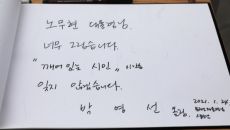 노무현 대통령님.
너무 그립습니다.
"깨어있는 시민"
잊지 않겠습니다.
박 영 선 드림.
2021. 1. 24